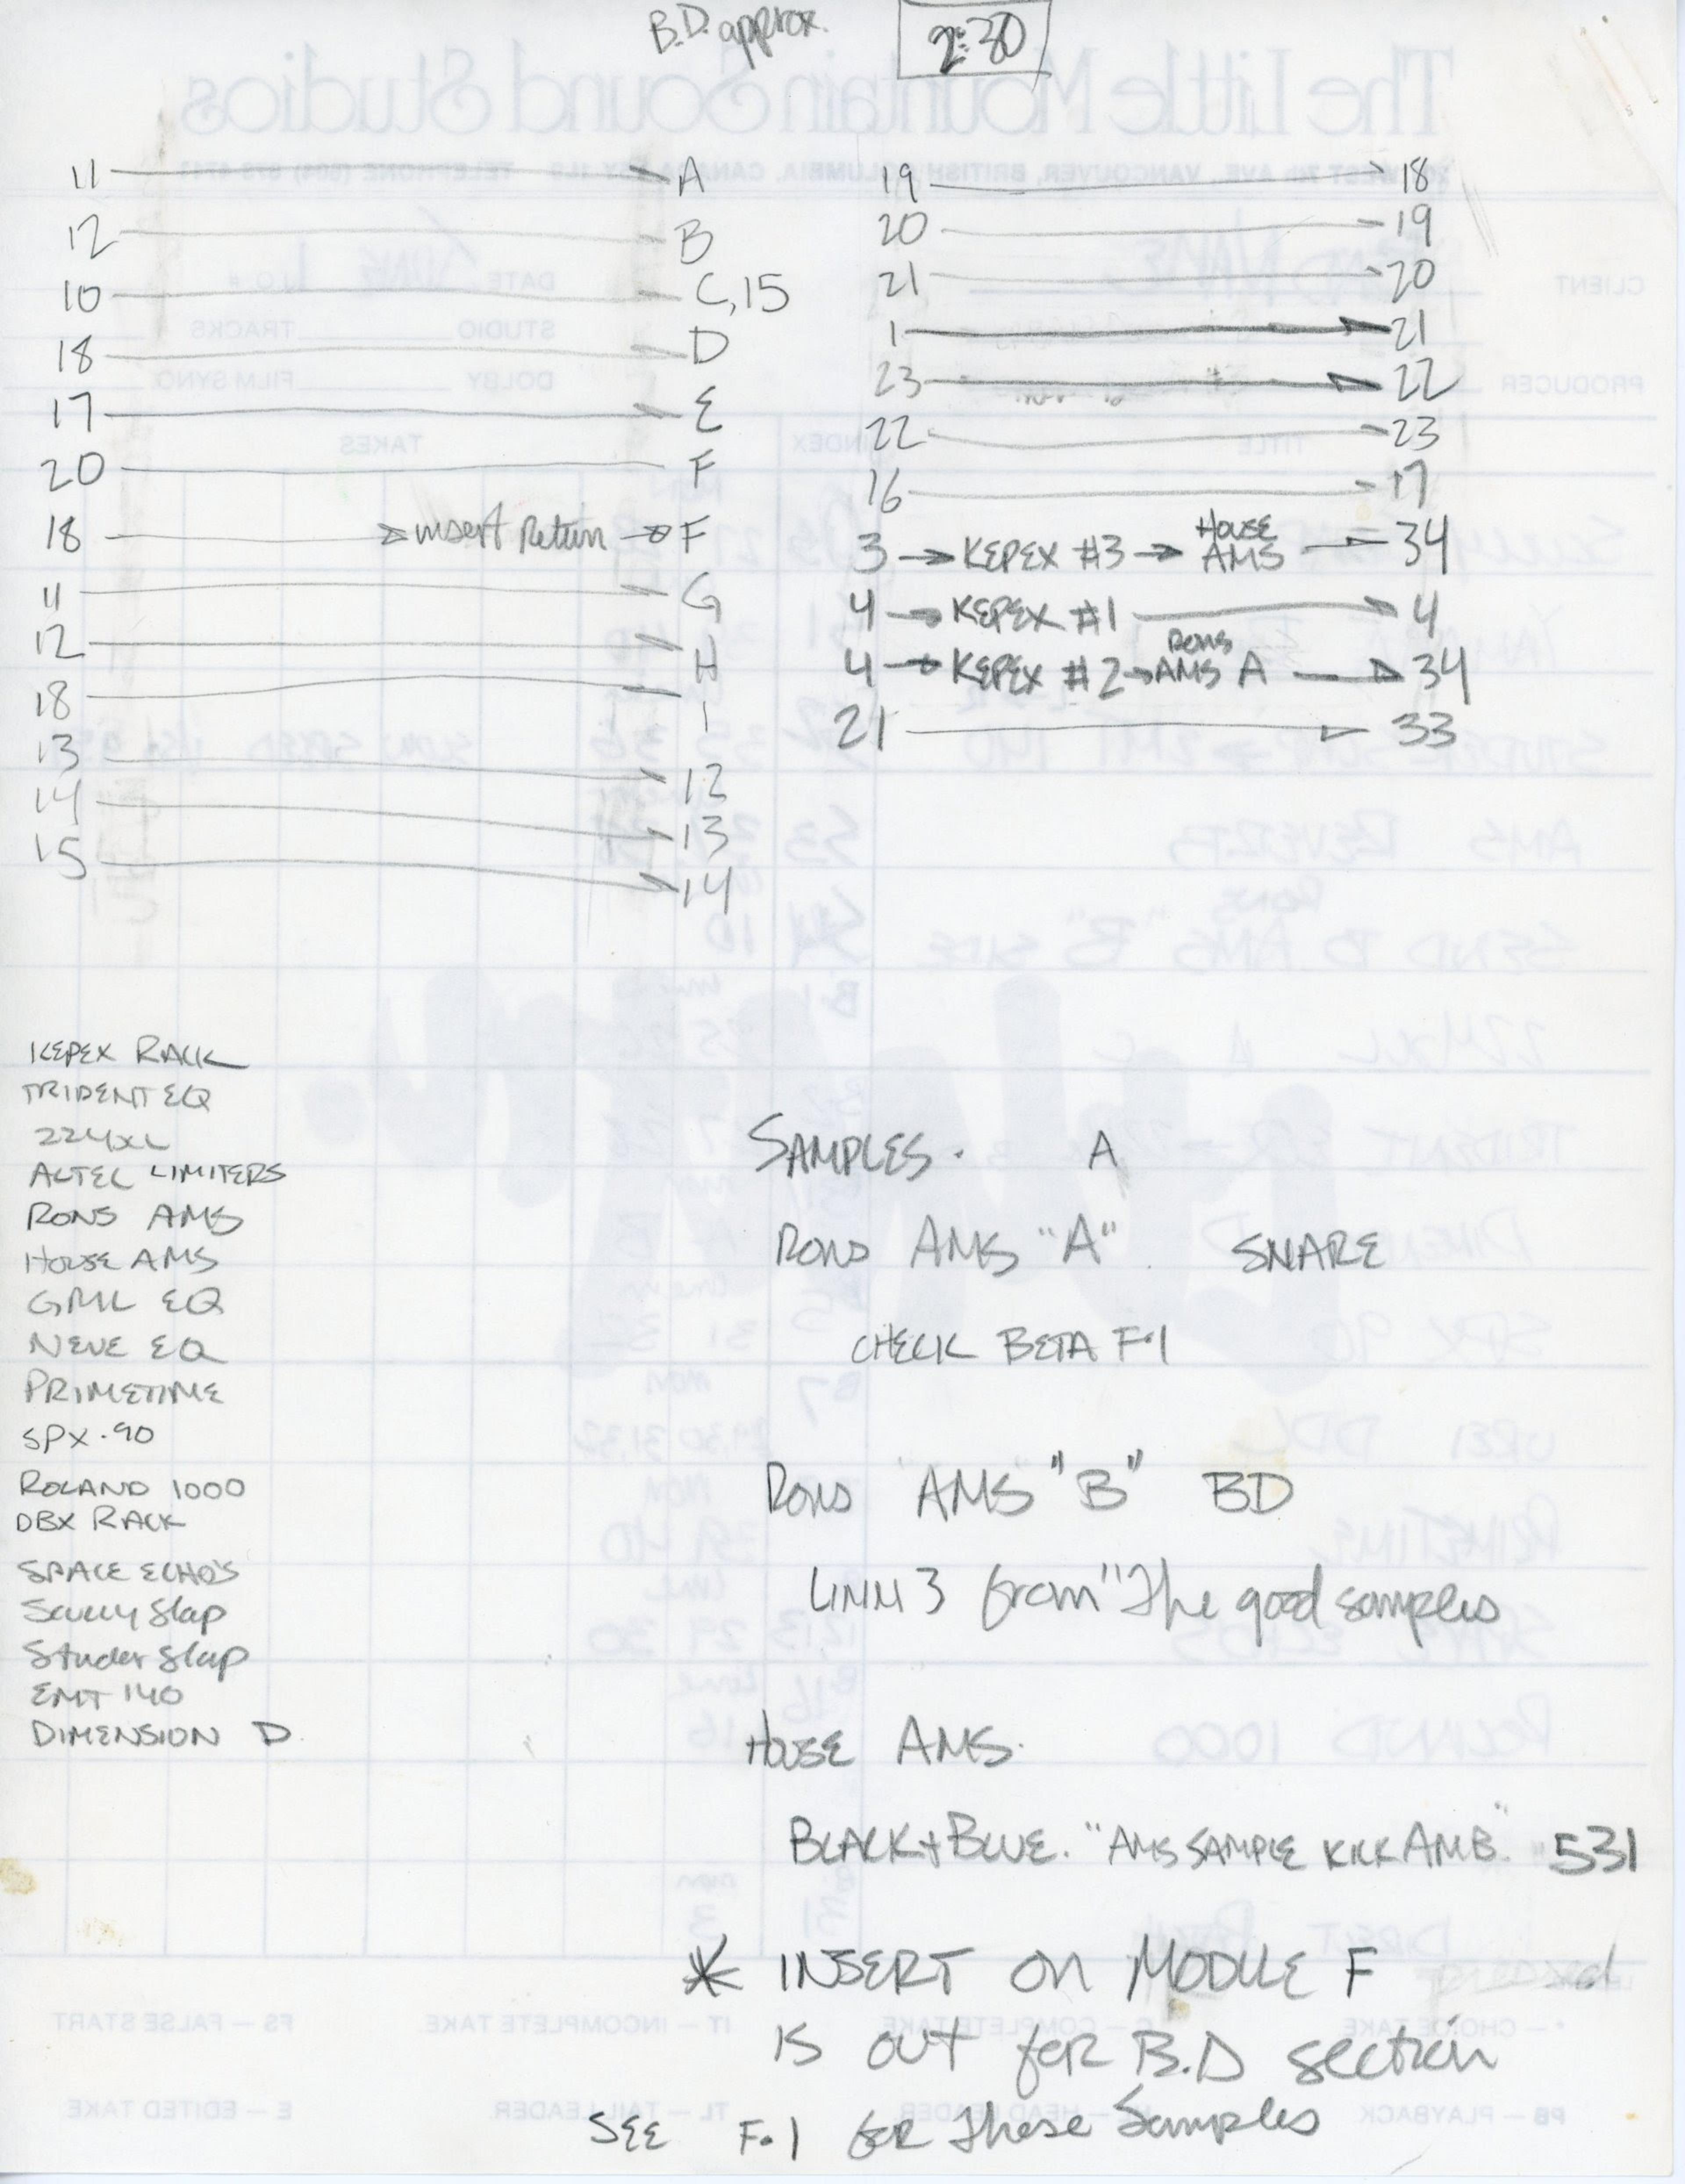 B.D. approx. 2:30
11 → A
12 → B
10 → C,15
18 → D
17 → E
20 → F
18 → insert Return → F
11 → G
12 → H
18 → I
13 → 12
14 → 13
15 → 14
19 → 18
20 → 19
21 → 20
1 → 21
23 → 22
22 → 23
16 → 17
3 → KEPEX #3 → HOUSE AMS → 34
4 → KEPEX #1 → 4
4 → KEPEX #2 → RONS AMS A → 34
21 → 33
KEPEX RACK
TRIDENT EQ
224XL
ALTEC LIMITERS
RONS AMS
HOUSE AMS
GML EQ
NEVE EQ
PRIMETIME
SPX·90
ROLAND 1000
DBX RACK
SPACE ECHO'S
Scully Slap
Studer Slap
EMT 140
DIMENSION D
SAMPLES. A
RONS AMS "A" SNARE
CHECK BETA F·1
RONS AMS "B" BD
LINN 3 from "The good samples
HOUSE AMS.
BLACK+BLUE. "AMS SAMPLE KICK AMB." 531
* INSERT ON MODULE F
IS OUT FOR B.D section
SEE F·1 FOR These Samples